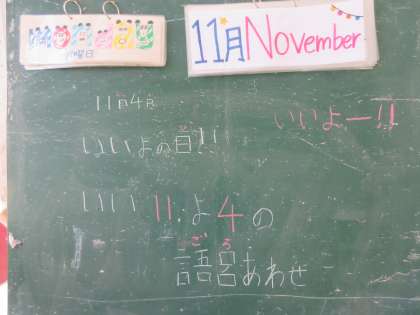 MONDAY
月曜日
11月 November
11月4日
いいよの日!!
いいよー!!
いい 11.よ4の
ごろ
語呂あわせ